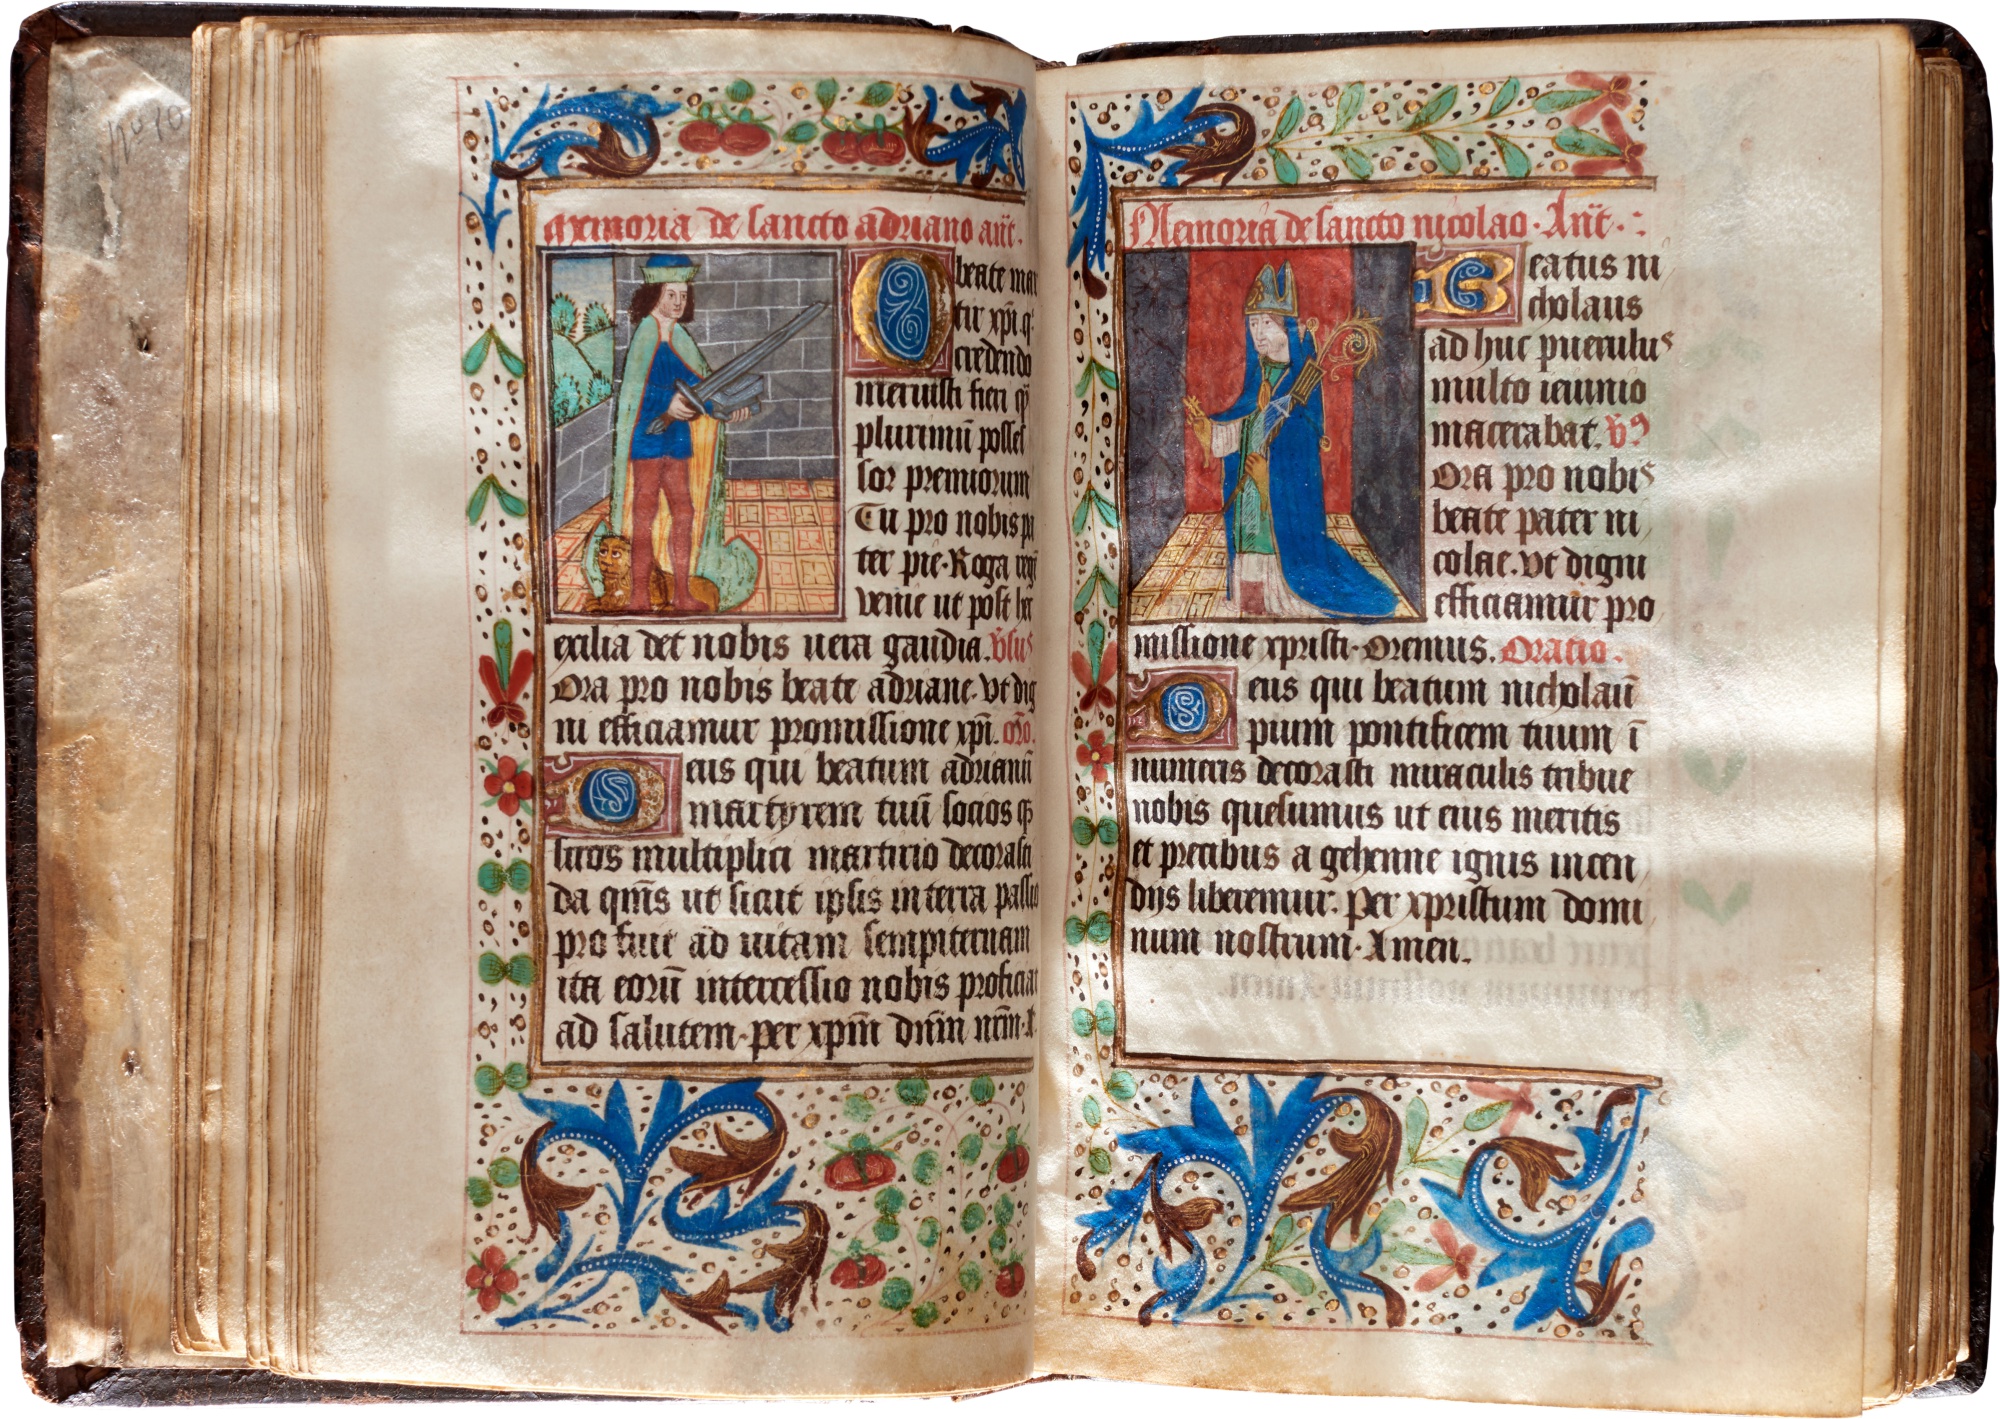 Nº 10
Memoria de sancto adriano añt.
O beate mar
tir xp̄i q̄
credendo
meruisti fieri
plurimū posses
sor premiorum
Tu pro nobis pa
ter pie. Roga
venie ut post hec
exilia det nobis uera gaudia. v̄sus
Ora pro nobis beate adriane. Vt dig
ni efficiamur promissione xp̄i. or̄o.
Deus qui beatum adrianū
martyrem tuū socios q̄
suos multiplici martirio decorasti
da qm̄s ut sicut ipsis in terra passio
pro fuit ad uitam sempiternam
ita eorū intercessio nobis proficiat
ad salutem. per xp̄m dn̄m nr̄m. A
Memoria de sancto nycolao. Añt.
Beatus ni
cholaus
ad huc puerulus
multo ieiunio
macerabat. v̄s
Ora pro nobis
beate pater ni
colae. Vt digni
efficiamur pro
missione xpristi. Oremus. Oratio.
Deus qui beatum nicholaū
pium pontificem tuum ī
numeris decorasti miraculis tribue
nobis quesumus ut eius meritis
et precibus a gehenne ignis incen
dijs liberemur. Per xpristum domi
num nostrum. Amen.